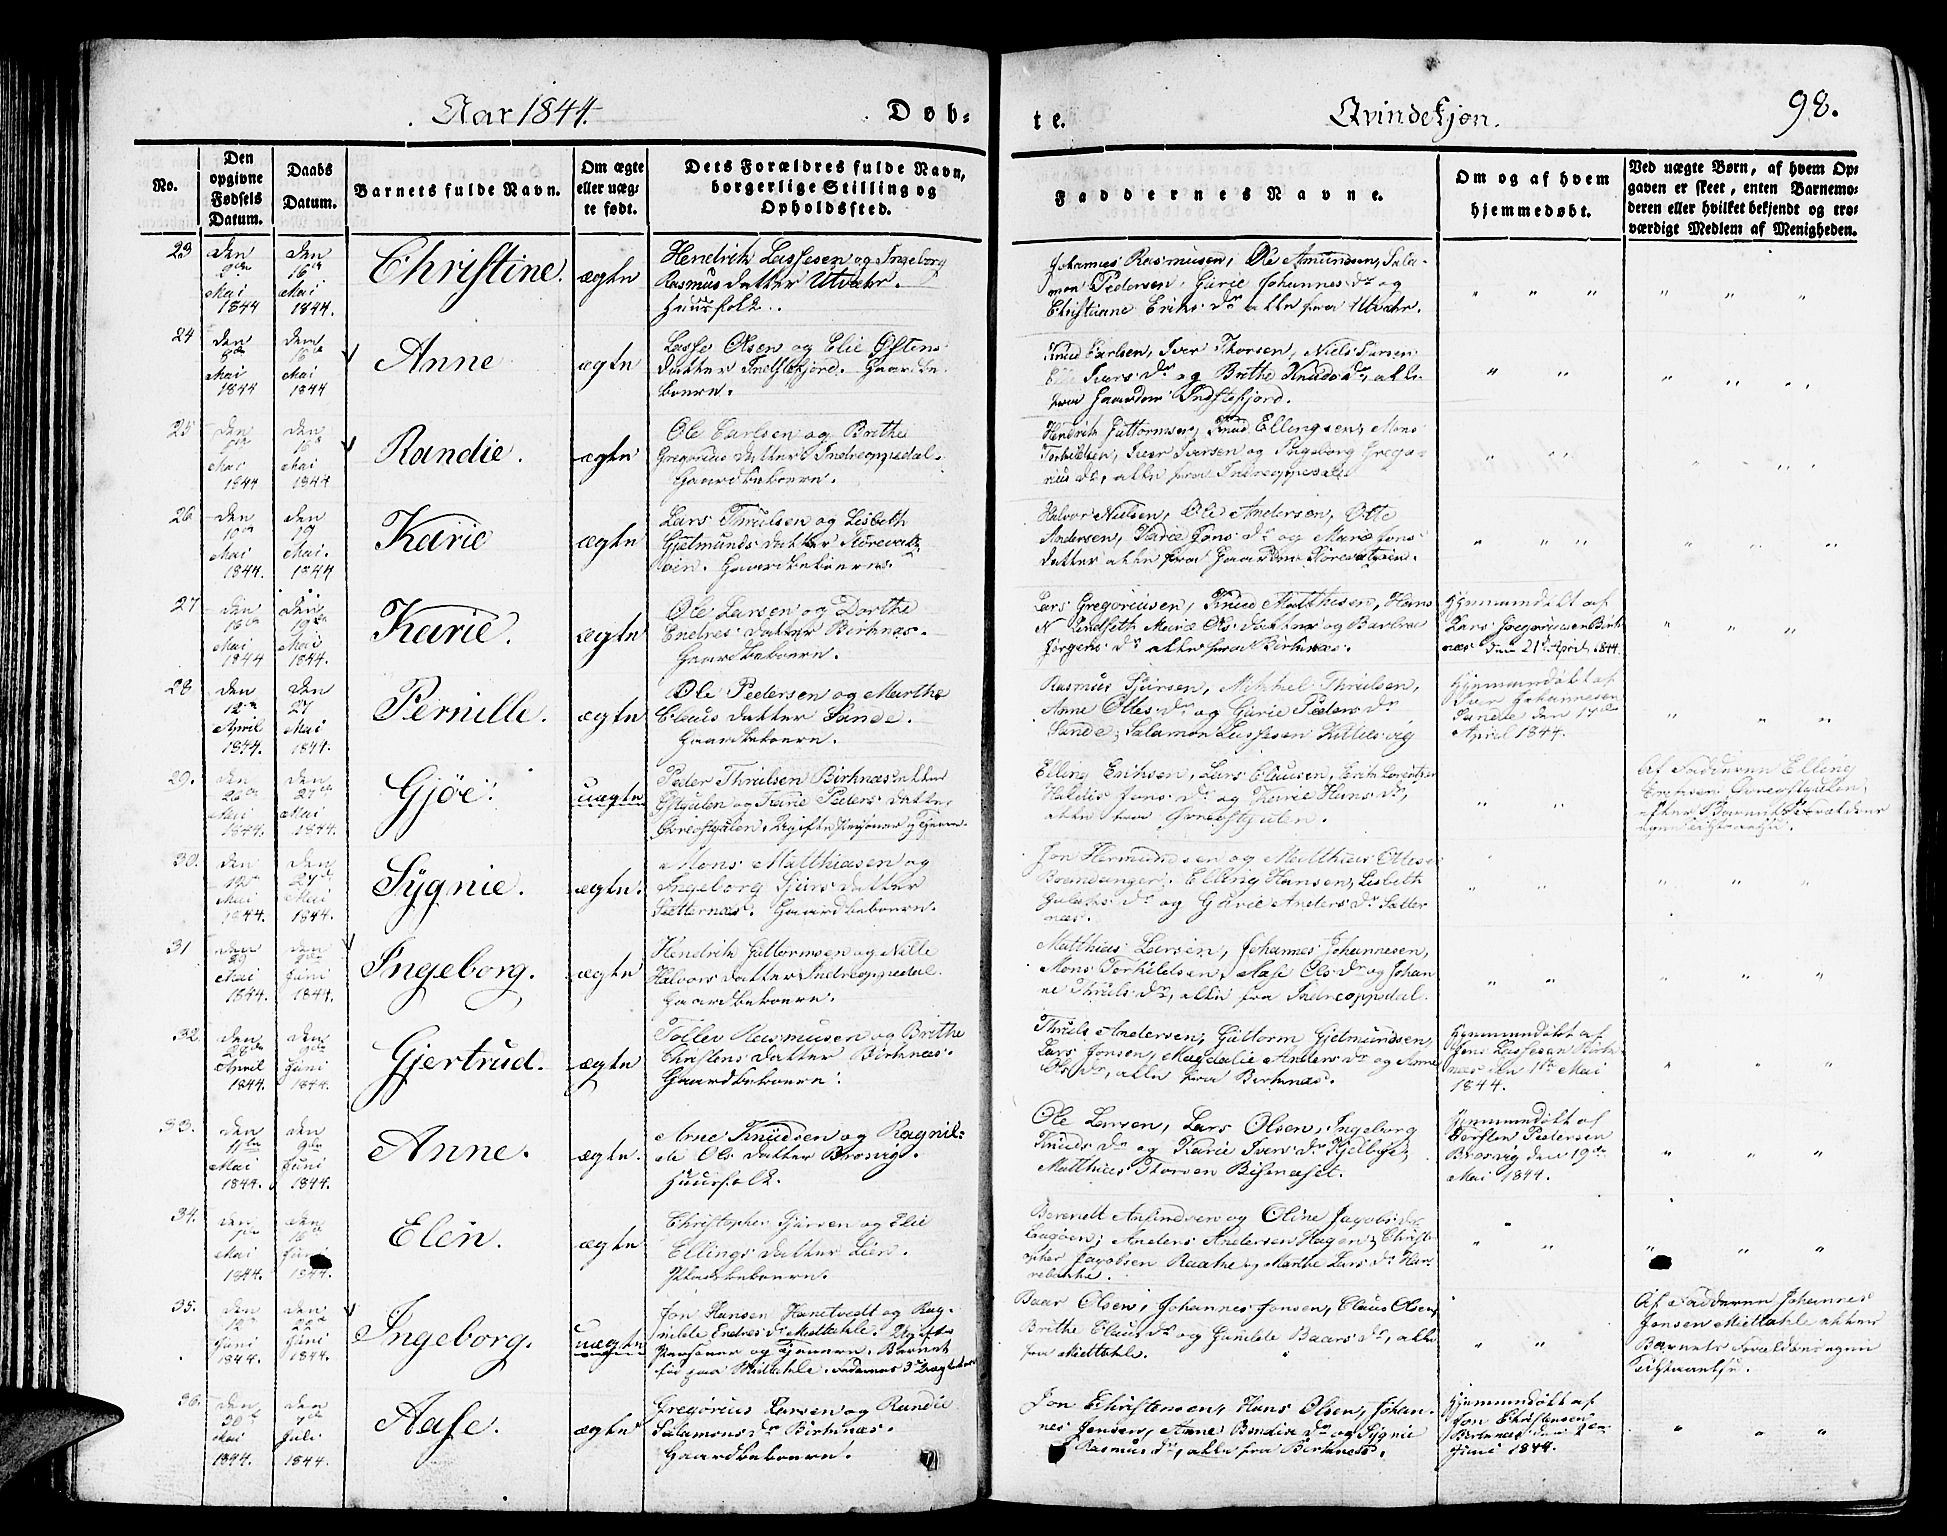 Aar 1844.
Døb-
te.
Qvindekjøn.
98.
No.
Den
opgivne
Fødsels
Datum.
Daabs
Datum.
Barnets fulde Navn.
Om ægte
eller uæg-
te født.
Dets Forældres fulde Navn,
borgerlige Stilling og
Opholdssted.
Faddernes Navne.
Om og af hvem
hjemmedøbt.
Ved uægte Børn, af hvem Op-
gaven er skeet, enten Barnemo-
deren eller hvilket bekjendt og tro-
værdigt Medlem af Menigheden.
23
den
9de
Mai
1844
den
16de
Mai
1844.
Christine.
ægte
Hendrik Lassesen og Ingeborg
Rasmusdatter Utvær.
Huusfolk.
Johannes Rasmusen, Ole Amundsen, Sala-
mon Pedersen, Gurie Johannes dr og
Christiane Eriks dr alle fra Utvær.
24
den
Mai
1844
den
Mai
1844
Anne
ægte
Lasse Olsen og Elie Østens
datter Indstefjord. Gaardbe-
boere.
Knud Carlsen, Iver Thorsen, Niels
Ivers dr og Brithe Knuds dr, alle
fra Gaarden Indstefjord.
25
den
Mai
1844
den
Mai
1844
Randie.
ægte
Ole Carlsen og Brithe
Gregorius datter Indreoppedal.
Gaardbeboere.
Hendrik Guttormsen, Knud Ellingsen, Mons
Torkildsen, Iver Iversen og Ingeborg Grego-
rius dr, alle fra Indreoppedal.
26
den
Mai
1844.
den
19
Mai.
1844
Karie
ægte
Lars Thrulsen og Lisbeth
Gjelmunds datter
Gaardbeboere.
Halvor Nielsen, Ole Andersen, Otte
Andersen, Karie Jons dr og Marie Jons
datter alle fra Gaarden
27
den
Mai
1844
den
19de
Mai
1844.
Karie.
ægte
Ole Larsen og Dorthe
Endres datter Birknæs.
Gaardbeboere.
Lars Gregoriusen, Knud Matthisen, Hans
N Lindseth Marie Ols datter og Barbra
Jørgens dr alle fra Birknæs.
Hjemmedøbt af
Lars Gregoriusen Birk-
næs den 21de April 1844.
28
den
12te
April
1844.
den
27
Mai
1844.
Pernille.
ægte
Ole Pedersen og Marthe
Claus datter Sande.
Gaardbeboere.
Rasmus Sjursen, Mikkel Thrulsen,
Anne Ottes dr og Gurie Peders dr
Sande, Salamon Lassesen Kittelsvig
Hjemmedøbt af
Iver Johannesen
Sande den 17de
April 1844.
29.
den
26de
Mai
1844.
den
27de
Mai
1844.
Gjøe.
uægte
Peder Thrulsen Birknæs
og Karie Peders datter
Elling Eriksen, Lars Clausen, Erik
Haldis Jons dr og Karie Hans dr,
alle fra
Af Fadderen Elling
Eriksen
efter Barnets Forældres
egen Tilstaaelse.
30.
den
Mai
1844.
den
27de
Mai
1844.
Sygnie.
ægte.
Mons Matthiasen og
Ingeborg Sjurs datter
Sætternæs. Gaardbeboere.
Jon Hermundsen og Matthias Ottesen
Brandanger, Elling Hansen, Lisbeth
dr og Gurie Anders dr Sætter
næs.
31
den
Mai
1844.
den
Juni
1844.
Ingeborg.
ægte
Hendrik Guttormsen og
Halvors datter Indreoppedal.
Gaardbeboere.
Matthias Larsen, Johannes Johannesen,
Mons Torkildsen, Aase Ols dr og Johan
ne Thruls dr, alle fra Indreoppedal.
32.
den
28de
April
1844.
den
9de
Juni
1844.
Gjertrud.
ægte
Tollef Rasmusen og Brithe
Christens datter Birknæs.
Gaardbeboere.
Thruls Andersen, Guttorm Gjelmundsen,
Lars Jonsen, Magdalie Anders dr og Anne
Ols dr, alle fra Birknæs.
Hjemmedøbt af
Jens Lassesen Birk-
næs den 1te Mai
1844.
33.
den
11te
Mai
1844.
den
9de
Juni
1844.
Anne.
ægte.
Arne Knudsen og Ragnil-
de Ols datter Brosvig.
Huusfolk.
Ole Larsen, Lars Olsen, Ingeborg
Knuds dr og Karie Ivers dr
Matthias Thorsen
Hjemmedøbt af
Torsten Pedersen
Brosvig den 19de
Mai 1844.
34.
den
Mai
1844.
den
16de
Juni
1844.
Elen.
ægte
Christopher Sjursen og Elie
Ellings datter Lien.
Pladsbeboere.
Berendt Ansindsen og Oline Jacobs dr
Anders Andersen Hagen, Christo-
pher Jacobsen og Marthe Lars dr
35.
den
12te
Juni
1844.
den
Juni
1844.
Ingeborg.
uægte
Jon Hansen Hanetvedt og Rag-
nilde Endres dr Midttahle. Ugifte
Personer og Tjenere. Barnet
Baar Olsen, Johannes Jonsen, Claus Olsen,
Brithe Claus dr og Gunilde Baars dr, alle
fra Midttahle.
Af Fadderen Johannes
Jonsen Midttahle efter
Barnets Forældres egen
Tilstaaelse.
36.
den
30te
Mai
1844.
den
7de
Juli
1844.
Aase.
ægte.
Gregorius Larsen og Randie
Salamons dr Birknæs.
Gaardbeboere.
Jon Christensen, Hans Olsen, Johan-
nes Jensen, Anne Bendix dr og Sygnie
Rasmus dr, alle fra Birknæs.
Hjemmedøbt af
Jon Christensen
Birknæs den 2den
Juni 1844.